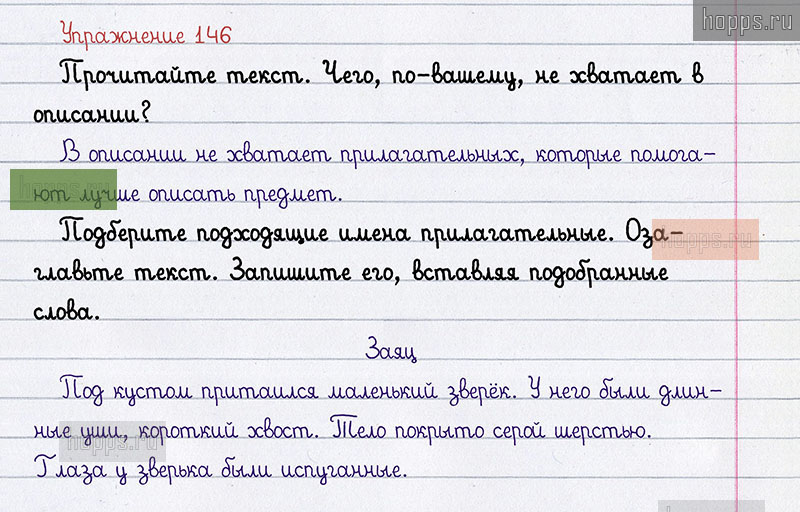 hopps.ru
Упражнение 146
Прочитайте текст. Чего, по-вашему, не хватает в
описании?
В описании не хватает прилагательных, которые помога-
ют лучше описать предмет.
Подберите подходящие имена прилагательные. Оза-
главьте текст. Запишите его, вставляя подобранные
слова.
Заяц
Под кустом притаился маленький зверёк. У него были длин-
ные уши, короткий хвост. Тело покрыто серой шерстью.
Глаза у зверька были испуганные.